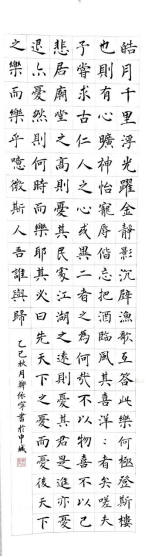 皓月千里浮光躍金静影沉璧漁歌互答此樂何極登斯樓
也則有心曠神怡寵辱偕忘把酒臨風其喜洋〻者矣嗟夫
予嘗求古仁人之心或異二者之為何哉不以物喜不以己
悲居廟堂之高則憂其民處江湖之遠則憂其君是進亦憂
退亦憂然則何時而樂耶其必曰先天下之憂而憂後天下
之樂而樂乎噫微斯人吾誰與歸
乙巳秋月鄭依寧書於申城